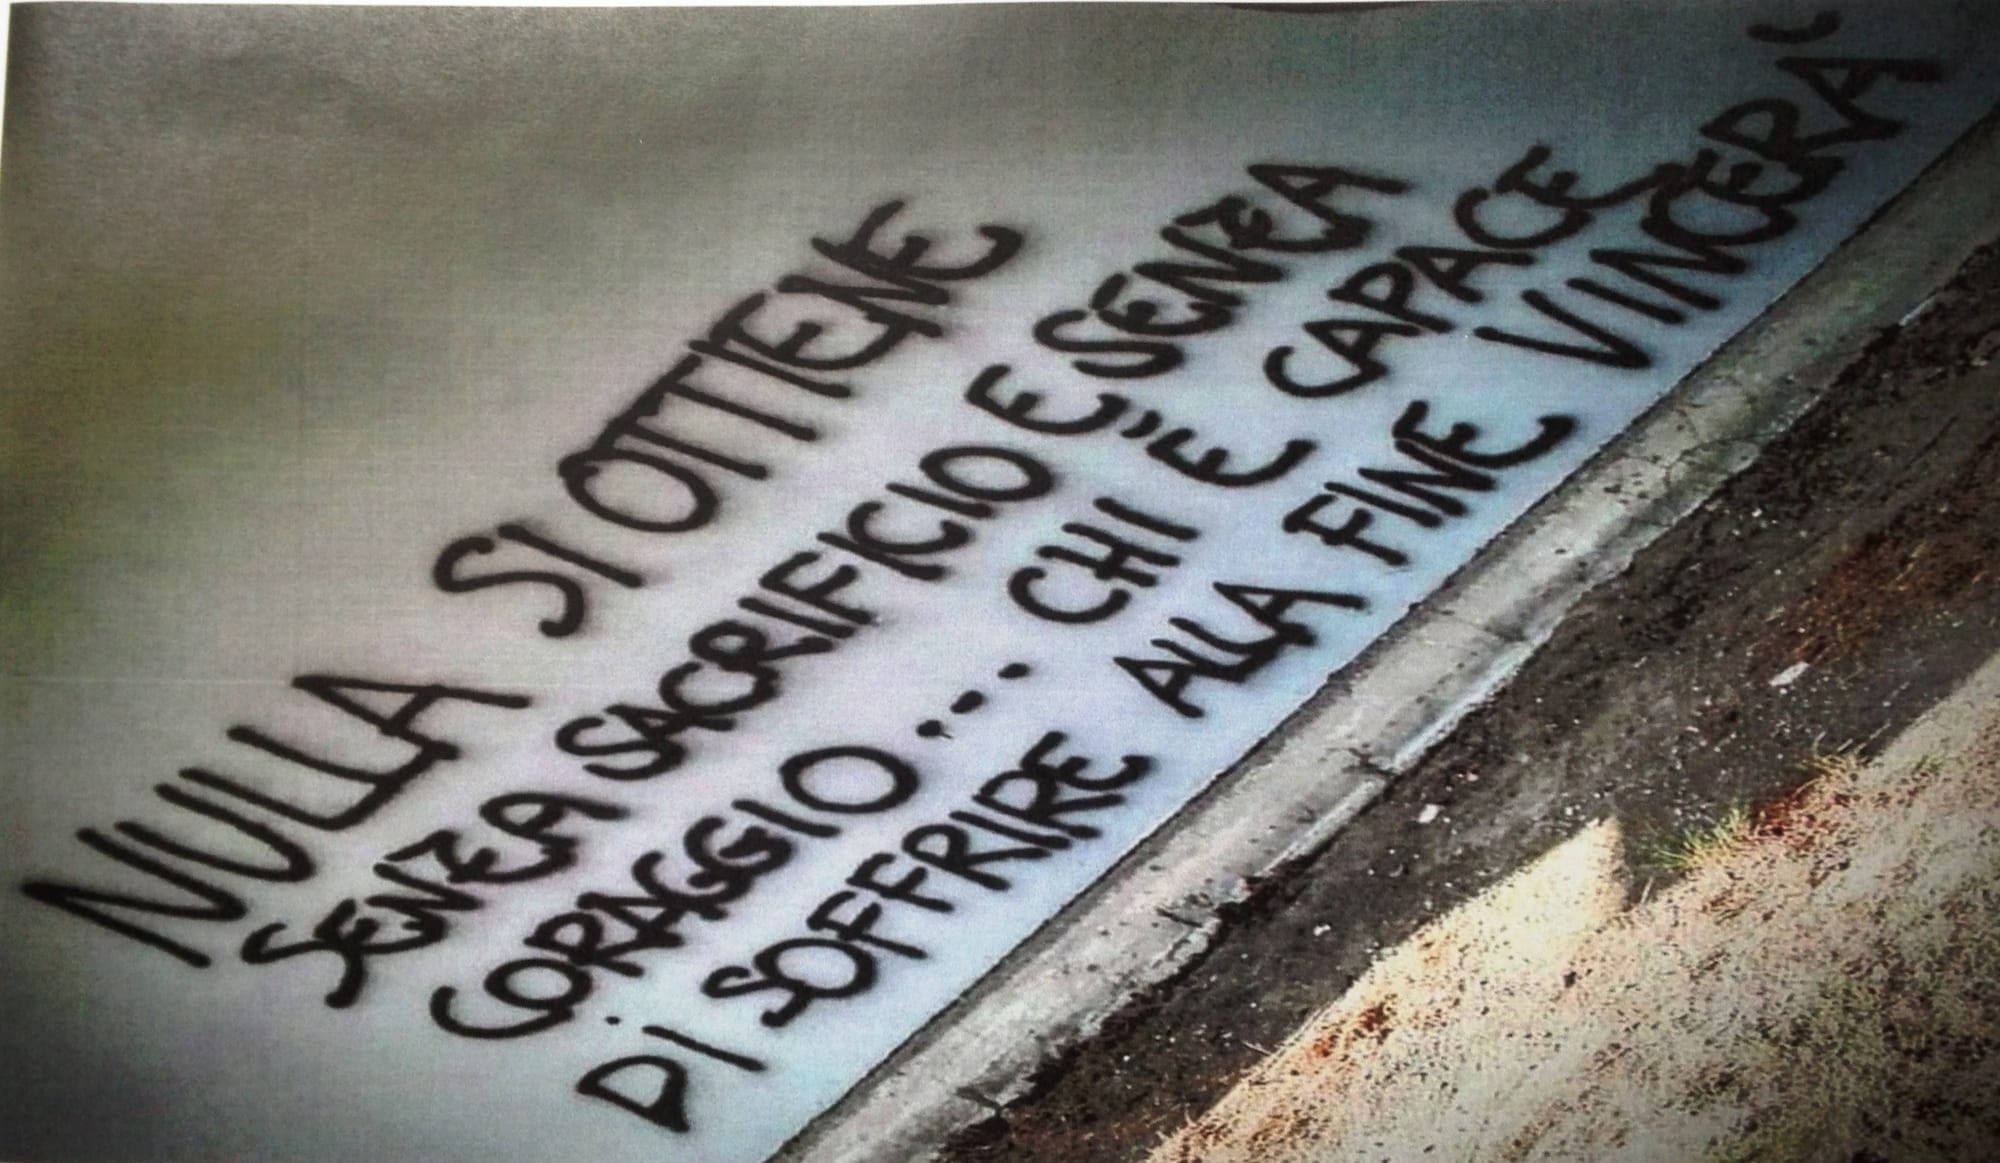 NULLA SI OTTIENE
SENZA SACRIFICIO E SENZA
CORAGGIO... CHI È CAPACE
Di SOFFRIRE ALLA FINE VINCERA'